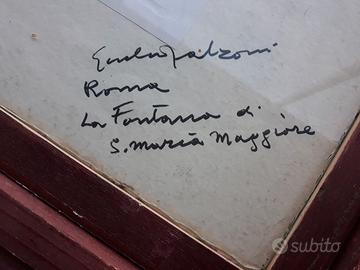 Giulio Falzoni
Roma
La Fontana di
S. Maria Maggiore
subito